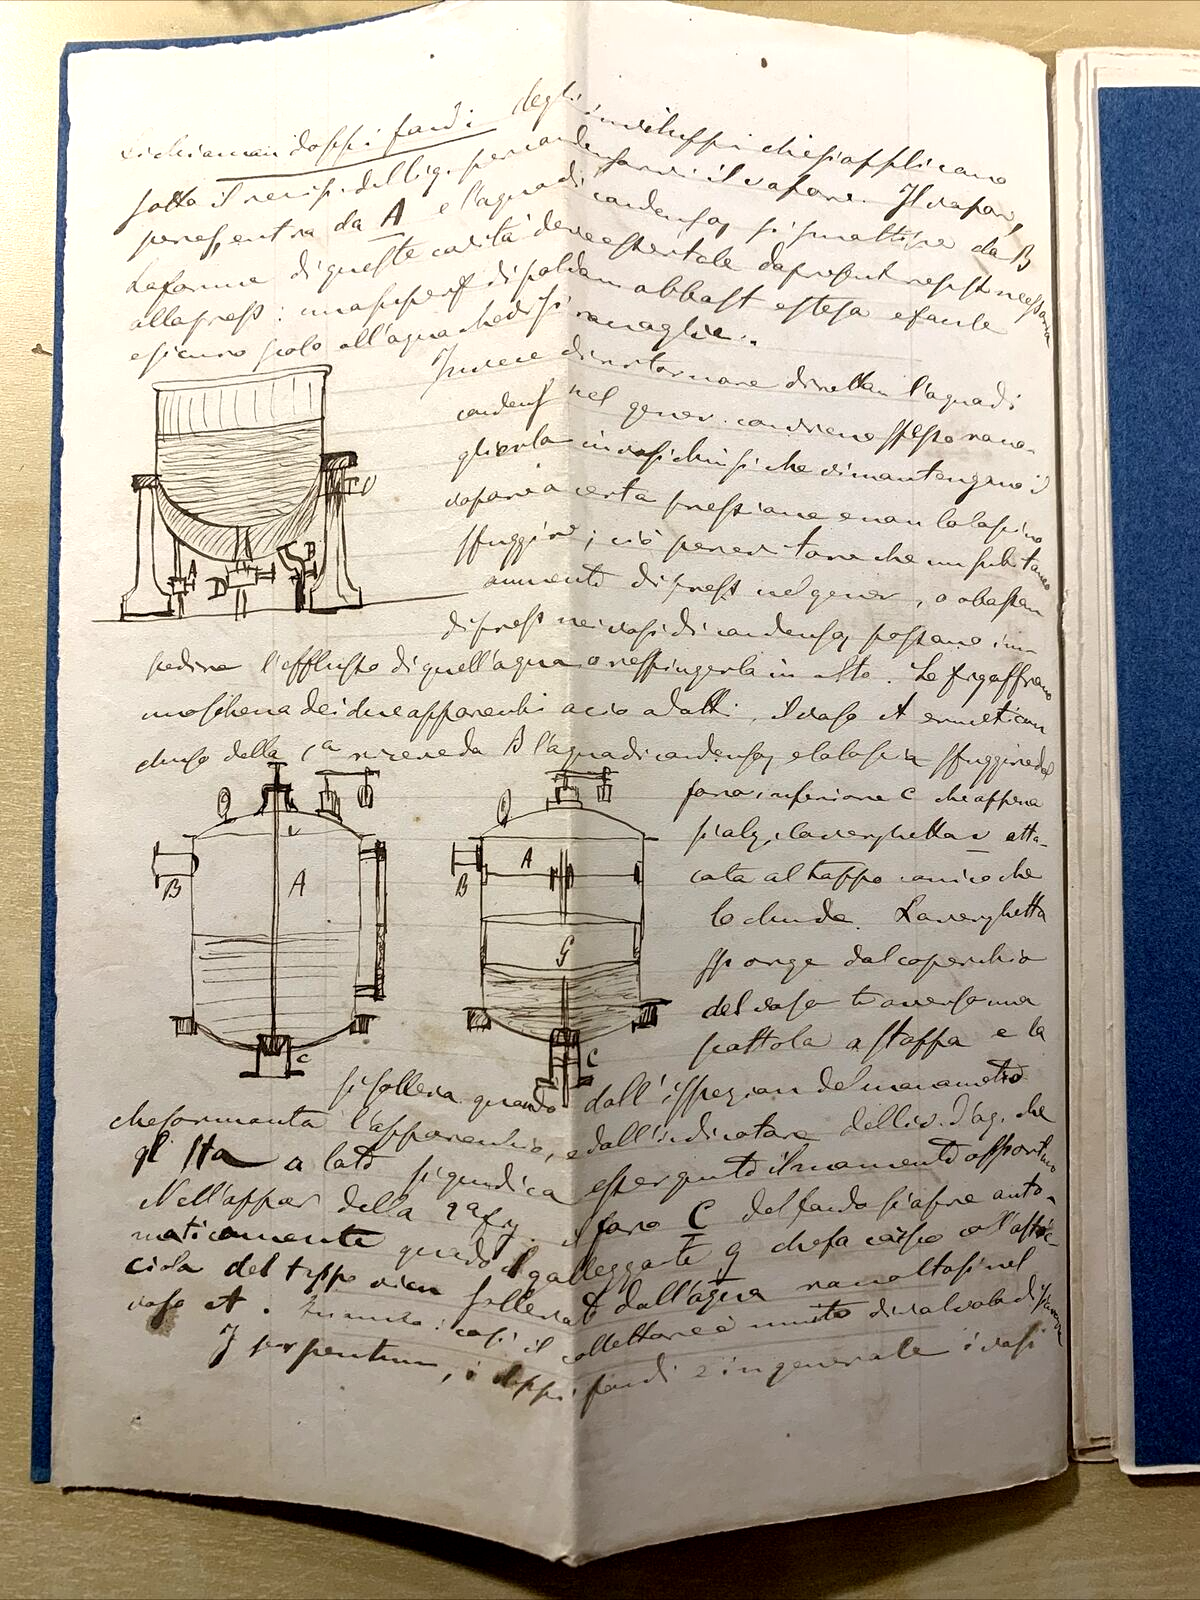 Si chiaman doppi fondi degli inviluppi che si applicano
sotto il recip. del liq. per condensarvi il vapore. Il vapor,
per es, entra da A e l'acqua di condensaz si smaltisce da B
La forma di queste cavità deve esser tale da presentar resist necessaria
alla press: una superf di saldam abbast estesa e facile
e sicuro scolo all'acqua che vi si raccoglie.
Invece di ritornare direttam l'acqua di
condens nel gener. conviene spesso racco-
glierla in vasi chiusi che vi mantengano il
vapore a certa pressione e non lo lascino
sfuggire; ciò per evitare che un subitaneo
aumento di press nel gener, o abbassam
di press nei vasi di condensaz possano im-
pedire l'efflusso di quell'acqua o respingerla in alto. Le fig offrono
uno schema dei due apparecchi a ciò adatti, il vaso A ermeticam
chiuso della 1ª riceve da B l'acqua di condensaz e la lascia sfuggire dal
foro inferiore C che appena
si alzi la verghetta v atta-
cata al tappo conico che
lo chiude. La verghetta
sporge dal coperchio
del vaso traverso una
scattola a stoppa e la
si solleva quando dall'ispezion del manometro
che sormonta l'apparecchio, e dall'indicatore del liv. d'ag. che
gli sta a lato si giudica esser giunto il momento opportuno
Nell'appar della 2ª fig. il foro C del fondo si apre auto-
maticamente quando il galleggiante G che fa corpo coll'asti-
ciola del tappo vien sollevat dall'acqua raccoltasi nel
vaso A. così il collettore è munito di valvola di sicurezza
I serpentini, i doppi fondi e in generale i vasi
A
B
D
A
B
C
V
A
B
G
C